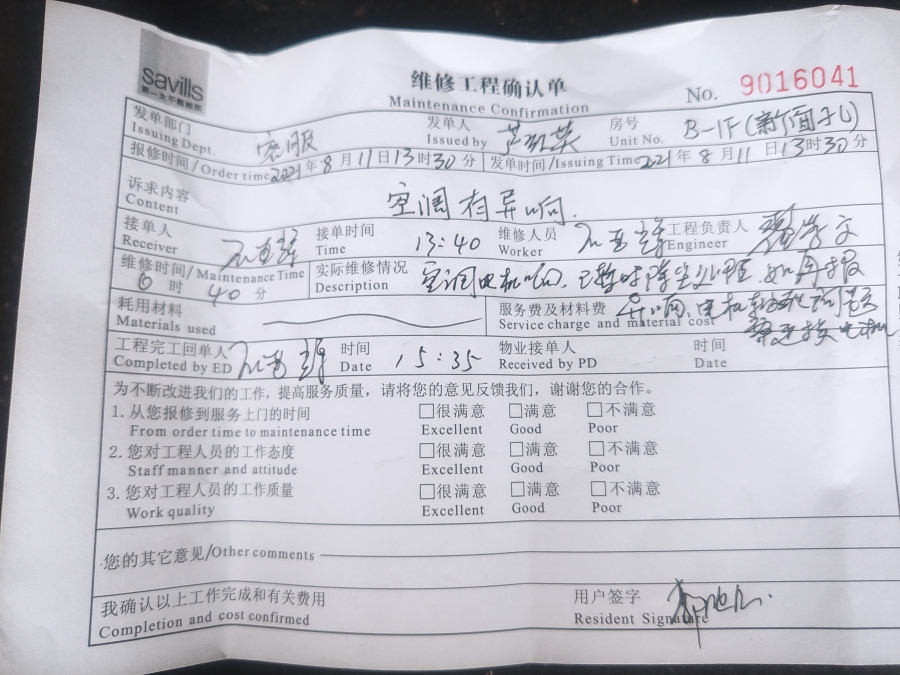 savills
第一太平戴维斯
维修工程确认单
Maintenance Confirmation
No. 9016041
发单部门 客服 发单人 房号 B-1F(新门面子儿)
Issuing Dept. Issued by Unit No.
报修时间/Order time 2021年8月11日13时30分 发单时间/Issuing Time 2021年8月11日13时30分
诉求内容 空调有异响.
Content
接单人 接单时间 13:40 维修人员 工程负责人
Receiver Time Worker Engineer
维修时间/Maintenance Time 0时40分 实际维修情况 空调电机响,已暂时降尘处理,如再报
Description
耗用材料 服务费及材料费 异响,电机
Materials used Service charge and material cost 电机
工程完工回单人 时间 15:35 物业接单人 时间
Completed by ED Date Received by PD Date
为不断改进我们的工作,提高服务质量,请将您的意见反馈我们,谢谢您的合作。
1. 从您报修到服务上门的时间 □很满意 □满意 □不满意
From order time to maintenance time Excellent Good Poor
2. 您对工程人员的工作态度 □很满意 □满意 □不满意
Staff manner and attitude Excellent Good Poor
3. 您对工程人员的工作质量 □很满意 □满意 □不满意
Work quality Excellent Good Poor
您的其它意见/Other comments
我确认以上工作完成和有关费用 用户签字
Completion and cost confirmed Resident Signature